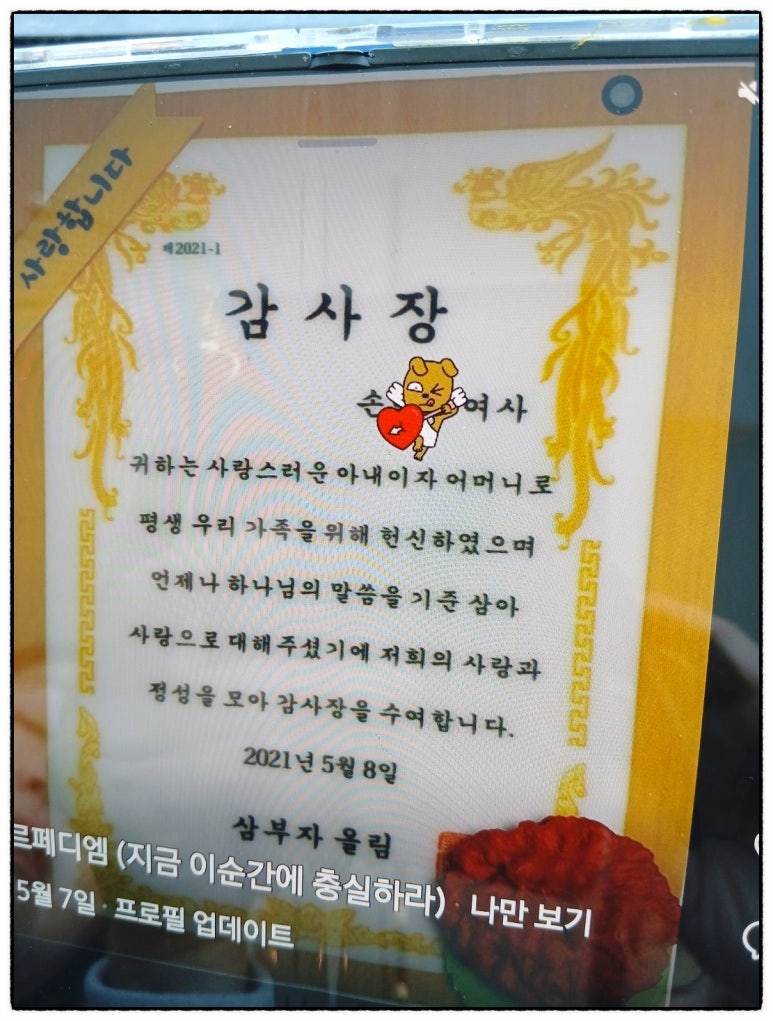 사랑합니다
제2021-1
감사장
손 여사
귀하는 사랑스러운 아내이자 어머니로
평생 우리 가족을 위해 헌신하였으며
언제나 하나님의 말씀을 기준 삼아
사랑으로 대해주셨기에 저희의 사랑과
정성을 모아 감사장을 수여합니다.
2021년 5월 8일
삼부자 올림
르페디엠 (지금 이순간에 충실하라) 나만 보기
5월 7일 · 프로필 업데이트